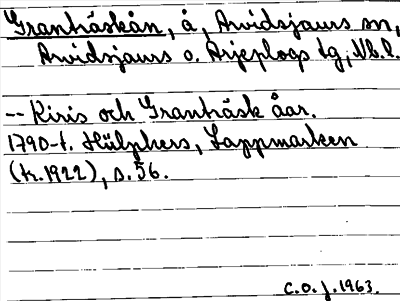 Granträskån, å, Arvidsjaurs sn,
Arvidsjaurs o. Arjeplogs tg, Vb.l.
-- Kiris och Granträsk åar.
1790-t. Hülphers, Lappmarken
(tr. 1922), s. 56.
C.O.J. 1963.